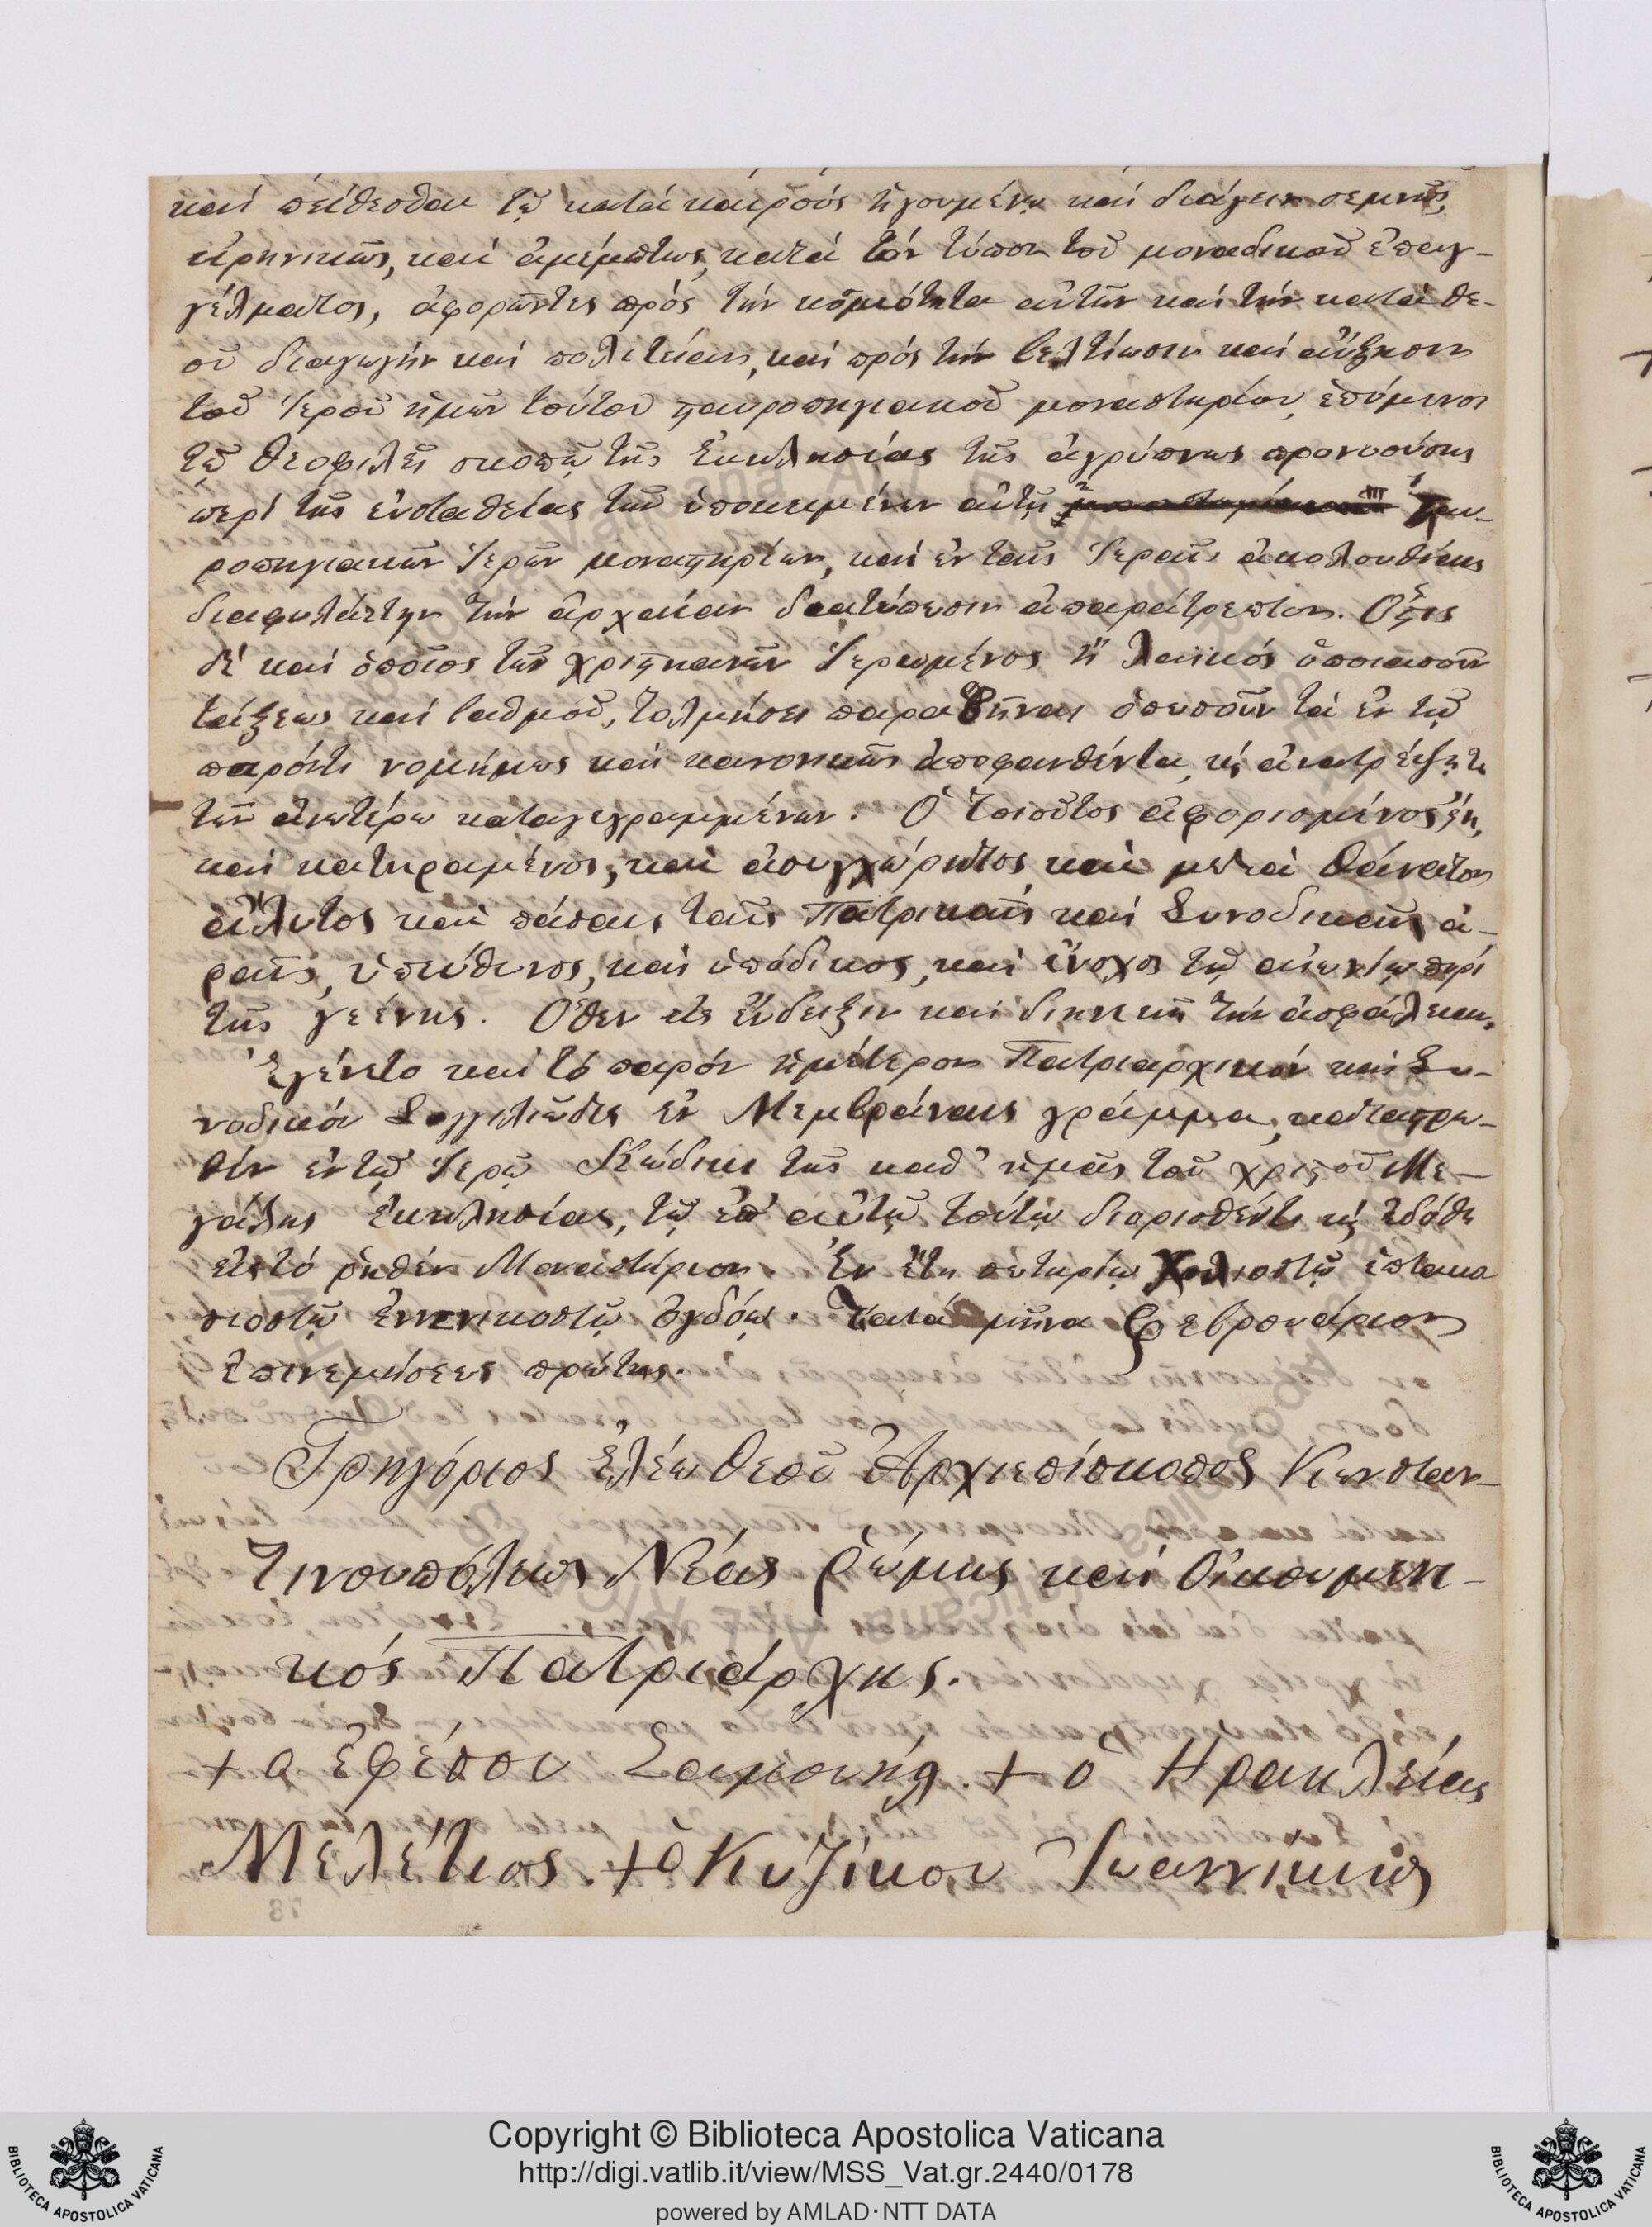 καὶ πείθεσθαι τῷ κατὰ καιροὺς ἡγουμένῳ καὶ διάγειν σεμνῶς,
εἰρηνικῶς, καὶ ἀμέμπτως, κατὰ τὸν τύπον τοῦ μοναδικοῦ ἐπαγ-
γέλματος, ἀφορῶντες πρὸς τὴν κοσμιότητα αὐτῶν καὶ τὴν κατὰ θε-
οῦ διαγωγὴν καὶ πολιτείαν, καὶ πρὸς τὴν βελτίωσιν καὶ αὔξησιν
τοῦ ἱεροῦ ἡμῶν τούτου σταυροπηγιακοῦ μοναστηρίου, ἑπόμενοι
τῷ θεοφιλεῖ σκοπῷ τῆς Ἐκκλησίας τῆς ἀγρύπνως προνοούσης
περὶ τῆς εὐσταθείας τῶν ὑποκειμένων αὐτῇ σταυ-
ροπηγιακῶν ἱερῶν μοναστηρίων, καὶ ἐν ταῖς ἱεραῖς ἀκολουθίαις
διαφυλάττειν τὴν ἀρχαίαν διατύπωσιν ἀπαράτρεπτον. Ὅστις
δὲ καὶ ὁποῖος τῶν χριστιανῶν ἱερωμένος ἢ λαϊκὸς ὁποιασοῦν
τάξεως καὶ βαθμοῦ, τολμήσει παραβῆναι ὁπωσοῦν τὰ ἐν τῷ
παρόντι νομίμως καὶ κανονικῶς ἀποφανθέντα, κ᾽ ἀνατρέψῃ τι
τῶν ἀνωτέρω καταγεγραμμένων. Ὁ τοιοῦτος ἀφορισμένος εἴη,
καὶ κατηραμένος, καὶ ἀσυγχώρητος καὶ μετὰ θάνατον
ἄλυτος καὶ πάσαις ταῖς Πατρικαῖς καὶ Συνοδικαῖς ἀ-
ραῖς, ὑπεύθυνος, καὶ ὑπόδικος, καὶ ἔνοχος τῷ αἰωνίῳ πυρὶ
τῆς γεένης. Ὅθεν εἰς ἔνδειξιν καὶ διηνεκῆ τὴν ἀσφάλειαν,
Ἐγένετο καὶ τὸ παρὸν ἡμέτερον Πατριαρχικὸν καὶ Συ-
νοδικὸν Σιγγιλιῶδες ἐν Μεμβράναις γράμμα, καταστρω-
θὲν ἐν τῷ ἱερῷ Κώδικι τῆς καθ᾽ ἡμᾶς τοῦ χριστοῦ Με-
γάλης Ἐκκλησίας, τῷ ἐπ᾽ αὐτῷ τούτῳ διορισθέντι κ᾽ ἐδόθη
εἰς τὸ ῥηθὲν Μοναστήριον. Ἐν ἔτει σωτηρίῳ Χιλιοστῷ ἑπτακο
σιοστῷ ἐννενηκοστῷ ὀγδόῳ. Κατὰ μῆνα Φεβρουάριον
ἐπινεμήσεως πρώτης.
Γρηγόριος ἐλέῳ Θεοῦ Ἀρχιεπίσκοπος Κωνσταν-
τινουπόλεως Νέας Ῥώμης καὶ Οἰκουμενι-
κὸς Πατριάρχης.
+ ὁ Ἐφέσου Σαμουήλ. + ὁ Ἡρακλείας
Μελέτιος. + ὁ Κυζίκου Ἰωαννίκιος
78
Copyright © Biblioteca Apostolica Vaticana
http://digi.vatlib.it/view/MSS_Vat.gr.2440/0178
powered by AMLAD·NTT DATA
BIBLIOTECA APOSTOLICA VATICANA
BIBLIOTECA APOSTOLICA VATICANA